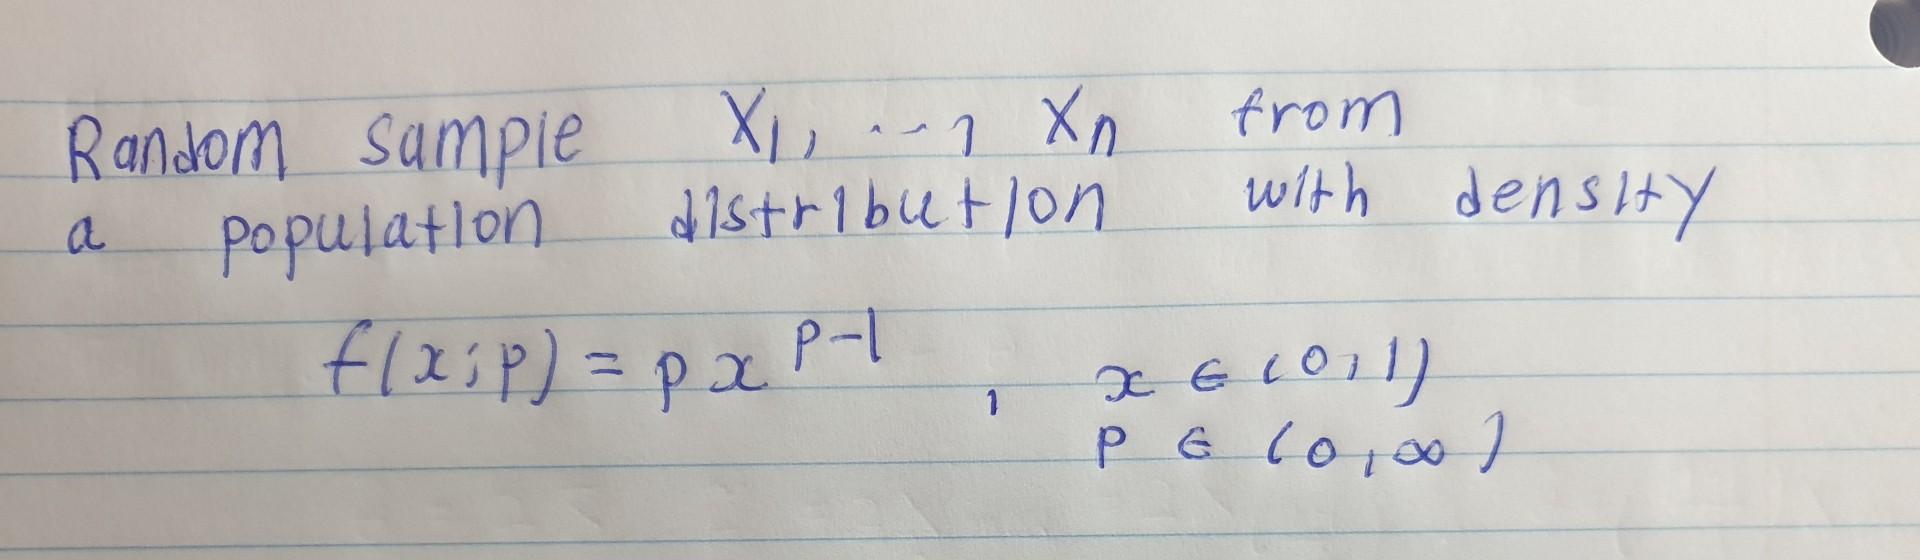 Random sample X₁, ..., Xₙ from
a population distribution with density
f(x;p) = p x^{p-1}, x ∈ (0,1)
p ∈ (0,∞)